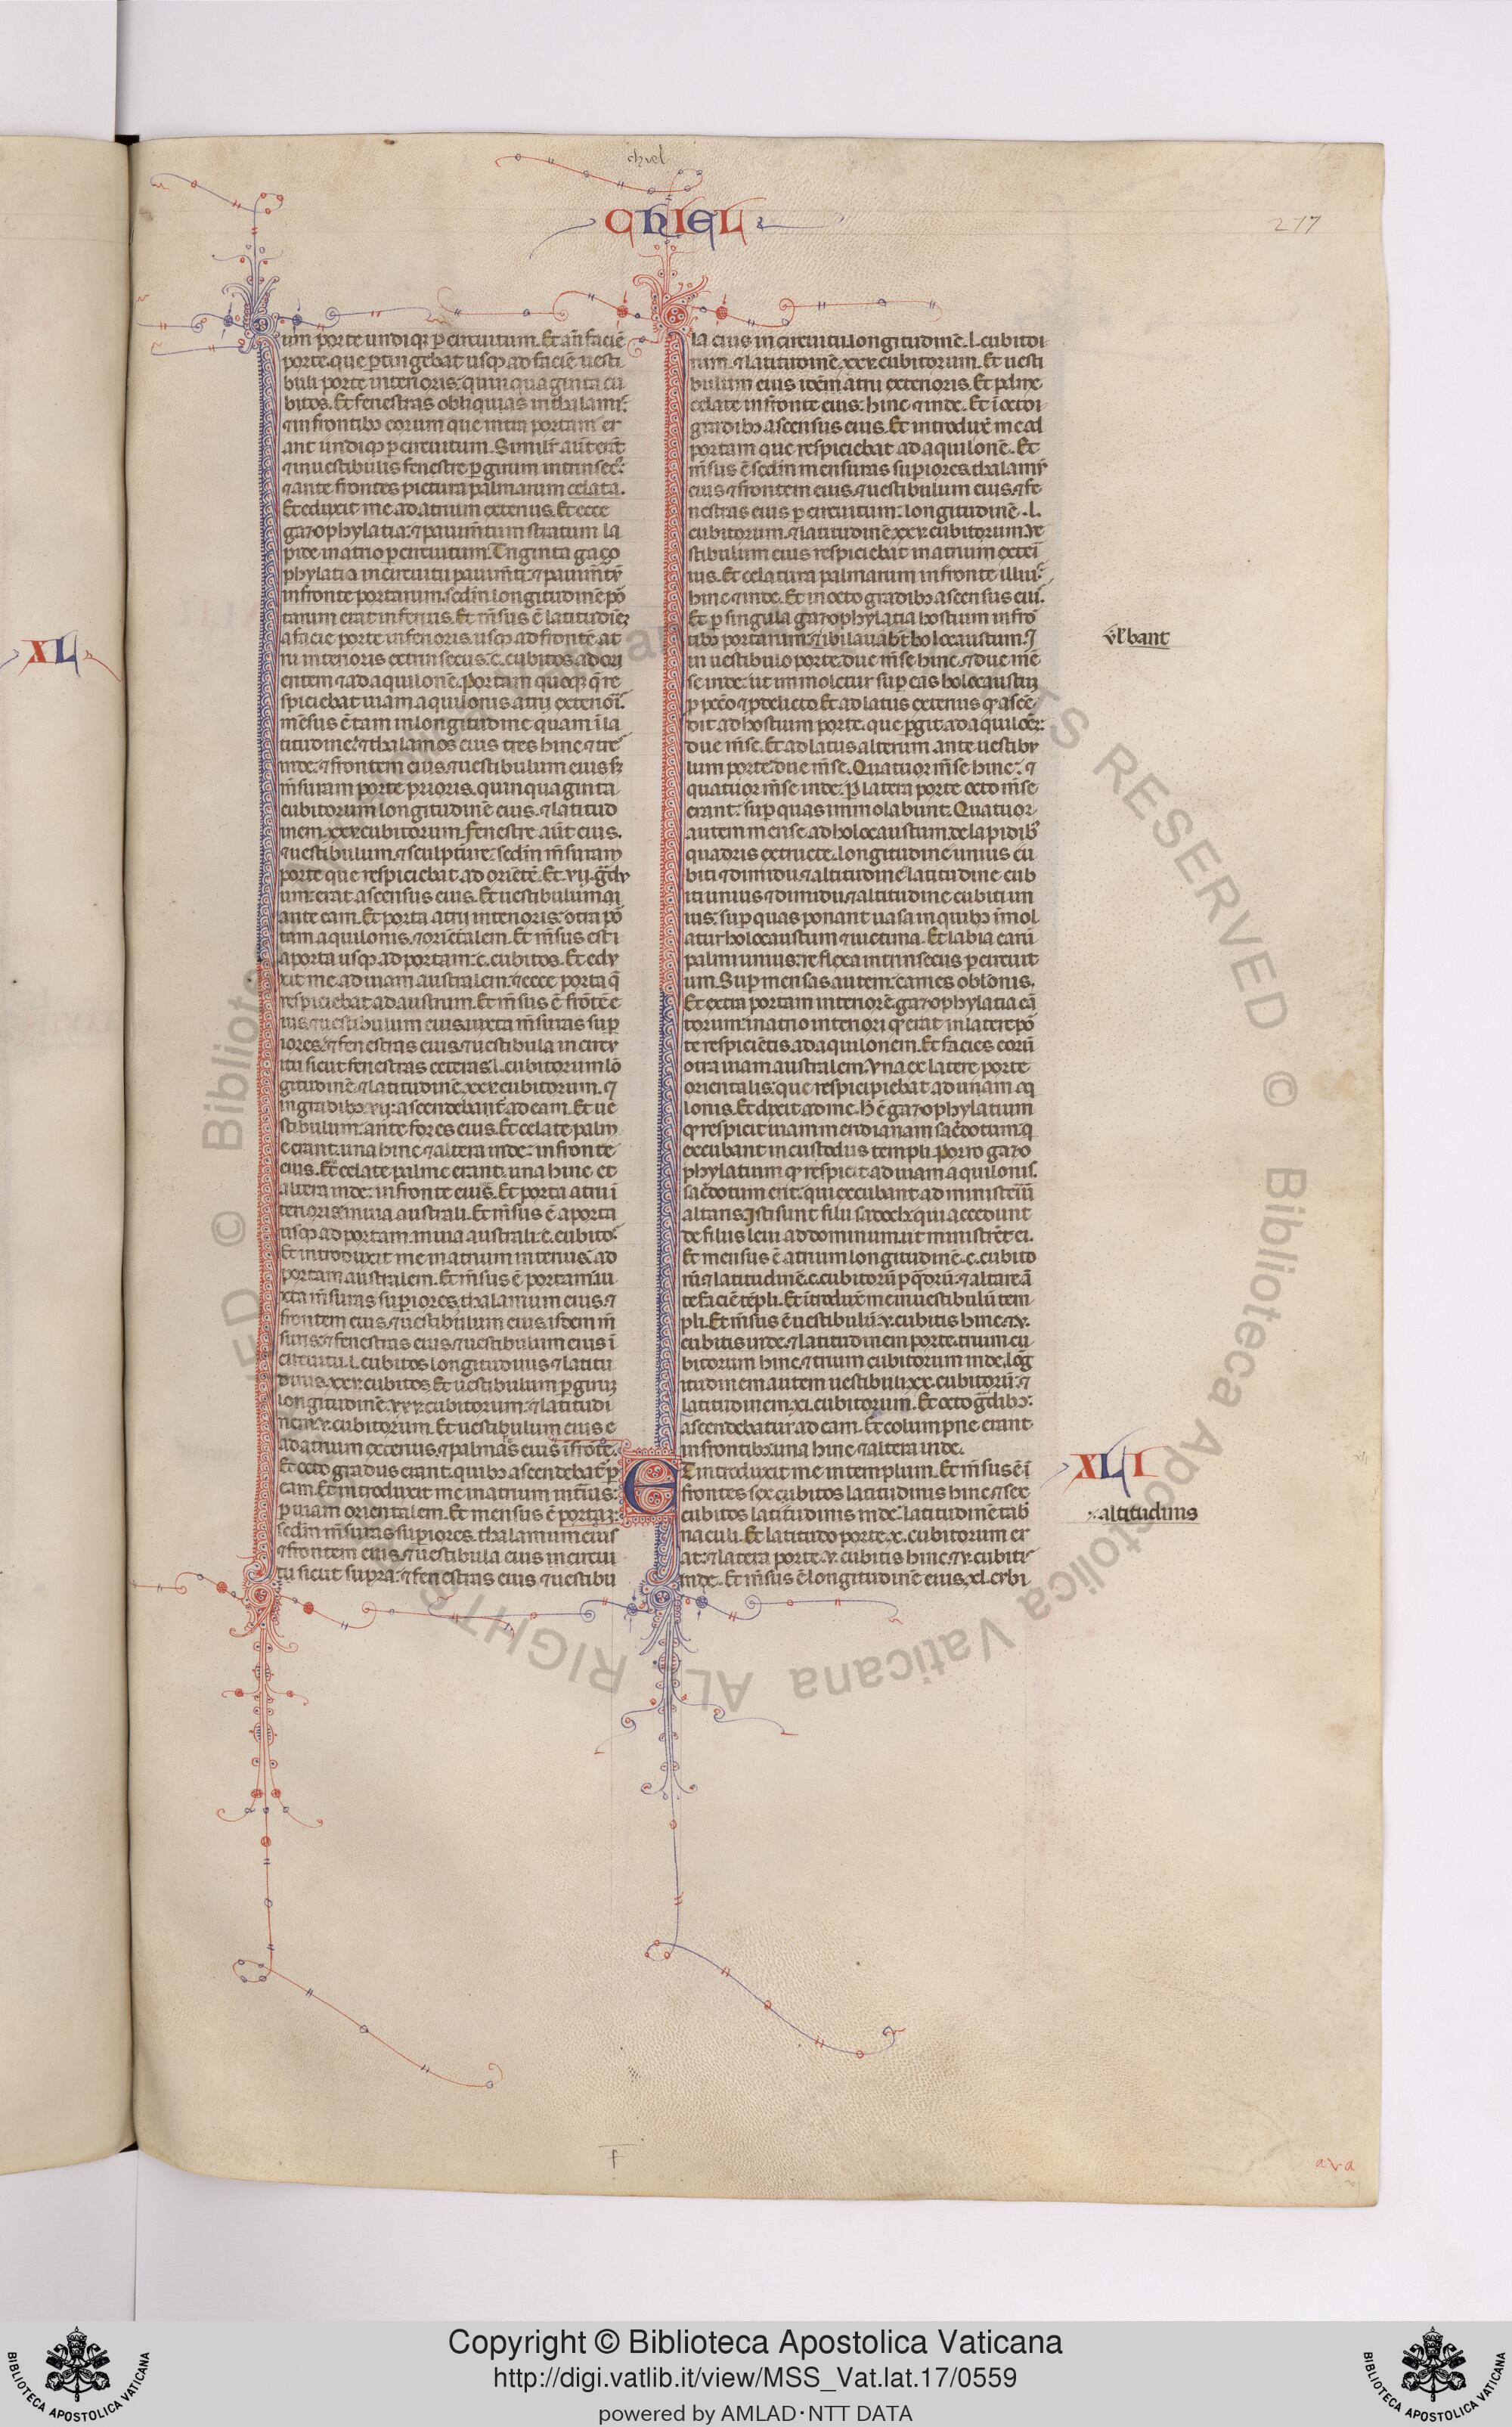 chiel
CHIEL
277
um porte undiqꝫ ꝑ circuitum. Et an̄ faciē
porte que ꝑtingebat usqꝫ ad faciē uesti
buli porte interioris: quinquaginta cu
bitos. Et fenestras obliquas in thalamis.
⁊ in frontibꝫ eorum que intra portam er
ant undiqꝫ ꝑ circuitum. Similr̄ aūt erāt
⁊ in uestibulis fenestre ꝑ girum intrinsecꝰ.
⁊ ante frontes pictura palmarum celata.
Et eduxit me ad atrium exterius. Et ecce
gazophylatia: ⁊ pauim̄tum stratum la
pide in atrio ꝑ circuitum. Triginta gaço
phylatia in circuitu pauim̄ti: ⁊ pauim̄tū
in fronte portarum. sedm̄ longitudinē por
tarum erat inferius. Et m̄sus ē latitudinē
a facie porte inferioris usqꝫ ad frontē at
rii interioris extrinsecus. c. cubitos ad ori
entem ⁊ ad aquilonē. Portam quoqꝫ q̄ re
spiciebat uiam aquilonis atrii exterioris.
mēsus ē tam in longitudine quam ī la
titudine. ⁊ thalamos eius tres hinc ⁊ tres
inde. ⁊ frontem eius. ⁊ uestibulum eius sꝫ
m̄suram porte prioris. quinquaginta
cubitorum longitudinē eius. ⁊ latitud
inem. xxv. cubitorum. Fenestre aūt eius.
⁊ uestibulum. ⁊ sculpture. sedm̄ m̄suram
porte que respiciebat ad oriētē. Et vii. g̃du
um erat ascensus eius. Et uestibulum qꝫ
ante eam. Et porta atrii interioris. ↄtra por
tam aquilonis. ⁊ oriētalem. Et m̄sus est
a porta usqꝫ ad portam. c. cubitos. Et edu
xit me ad uiam australem. ⁊ ecce porta q̄
respiciebat ad austrum. Et m̄sus ē frōtē e
ius. ⁊ uestibulum eius. iuxta m̄suras suꝑ
iores. ⁊ fenestras eius. ⁊ uestibula in circu
itu sicut fenestras ceteras. l. cubitorum lō
gitudinē. ⁊ latitudinē. xxv. cubitorum. ⁊
in gradibꝫ vii. ascendebant̄ ad eam. Et ue
stibulum: ante fores eius. Et celate palm
e erant. una hinc ⁊ altera inde: in fronte
eius. Et celate palme erant. una hinc et
altera inde: in fronte eius. Et porta atrii ī
terioris in uia australi. Et m̄sus ē a porta
usqꝫ ad portam. in uia australi. c. cubitos.
Et introduxit me in atrium interius. ad
portam australem. Et m̄sus ē portam. iu
xta m̄suras superiores. thalamum eius. ⁊
frontem eius. ⁊ uestibulum eius. isdem m̄
suris. ⁊ fenestras eius. ⁊ uestibulum eius ī
circuitu. l. cubitos longitudinis ⁊ latitu
dinis. xxv. cubitos. Et uestibulum ꝑ girum
longitudinē. xxv. cubitorum. ⁊ latitudi
nem. v. cubitorum. Et uestibulum eius e
ad atrium exterius. ⁊ palmas eius ī frōte.
Et octo gradus erant. quibꝫ ascendebat̄ ꝑ
eam. Et introduxit me in atrium int̄ius.
ꝑ uiam orientalem. Et mensus ē portam.
sedm̄ m̄suras suꝑiores. thalamum eius
⁊ frontem eius. ⁊ uestibula eius in circui
tu sicut supra. ⁊ fenestras eius. ⁊ uestibu
la eius in circuitu. longitudinē. l. cubitor
um. ⁊ latitudinē. xxv. cubitorum. Et uesti
bulum eius idem̄ atrii exterioris. Et palme
celate in fronte eius: hinc ⁊ inde. Et ī octo
gradibꝫ ascensus eius. Et introduxit me ad
portam que respiciebat ad aquilonē. Et
m̄sus ē sedm̄ mensuras suꝑiores. thalamū
eius ⁊ frontem eius. ⁊ uestibulum eius. ⁊ fe
nestras eius ꝑ circuitum: longitudinē. l.
cubitorum. ⁊ latitudinē xxv. cubitorum. Ue
stibulum eius respiciebat in atrium exteri
us. Et celatura palmarum in fronte illius
hinc ⁊ inde. Et in octo gradibꝫ ascensus eiꝰ.
Et ꝑ singula gazophylatia hostium in frō
tibꝫ portarum. ⁊ ibi lauabāt holocaustum. ⁊
in uestibulo porte. due m̄se hinc. ⁊ due mē
se inde: ut immoletur suꝑ eas holocaustū
ꝓ pctō ⁊ ꝓ delicto. Et ad latus exterius qꝫ ascē
dit ad hostium porte. que ꝑgit ad aquilonē:
due m̄se. Et ad latus alterum ante uestibu
lum porte due m̄se. Quatuor m̄se hinc. ⁊
quatuor m̄se inde. ꝑ latera porte octo m̄se
erant. suꝑ quas immolabunt. Quatuor
autem mense ad holocaustum. de lapidibꝫ
quadris extructe. longitudine unius cu
biti ⁊ dimidii. ⁊ altitudine latitudine cub
iti unius ⁊ dimidii. ⁊ altitudine cubiti un
ius. suꝑ quas ponant uasa in quibꝫ īmol
atur holocaustum ⁊ uictima. Et labia earū
palmi unius. reflexa intrinsecus ꝑ circuit
um. Suꝑ mensas autem: carnes oblonis.
Et extra portam interiorē. gazophylatia cā
torum in atrio interiori qꝫ erat in latere por
te respiciētis ad aquilonem. Et facies eorū
ↄtra uiam australem. Vna ex latere porte
orientalis. que respicipiebat ad uiam aqi
lonis. Et dixit ad me. H̄ ē gazophylatium
qꝫ respicit uiam meridianam sac̄dotum. q
excubant in custodiis templi. Porro gazo
phylatium qꝫ respicit ad uiam aquilonis.
sac̄dotum erit. qui excubant ad ministeriū
altaris. Isti sunt filii sadoch. qui accedunt
de filiis leui ad dominum. ut ministrēt ei.
Et mensus ē atrium longitudinē. c. cubito
rū. ⁊ latitudinē. c. cubitorū ꝑ q̄drū. ⁊ altare ā
te faciē tēpli. Et ītroduxit me in uestibulū tem
pli. Et m̄sus ē uestibulū. v. cubitis hinc. ⁊ v.
cubitis inde. ⁊ latitudinem porte. trium cu
bitorum hinc. ⁊ trium cubitorum inde. lōg
itudinem autem uestibuli. xx. cubitorū. ⁊
latitudinem. xi. cubitorum. Et octo g̃dibꝫ
ascendebatur ad eam. Et columpne erant
in frontibꝫ. una hinc ⁊ altera inde.
ET introduxit me in templum. Et m̄sus ē ī
frontes sex cubitos latitudinis hinc ⁊ sex
cubitos latitudinis inde. latitudinē tab̄
naculi. Et latitudo porte. x. cubitorum er
at. ⁊ latera porte. v. cubitis hinc. ⁊ v. cubitis
inde. Et m̄sus ē longitudinē eius. xl. cubi
XL
vl̄ bant
XLI
altitudinis
f
ava
Copyright © Biblioteca Apostolica Vaticana
http://digi.vatlib.it/view/MSS_Vat.lat.17/0559
powered by AMLAD·NTT DATA
BIBLIOTECA APOSTOLICA VATICANA
BIBLIOTECA APOSTOLICA VATICANA